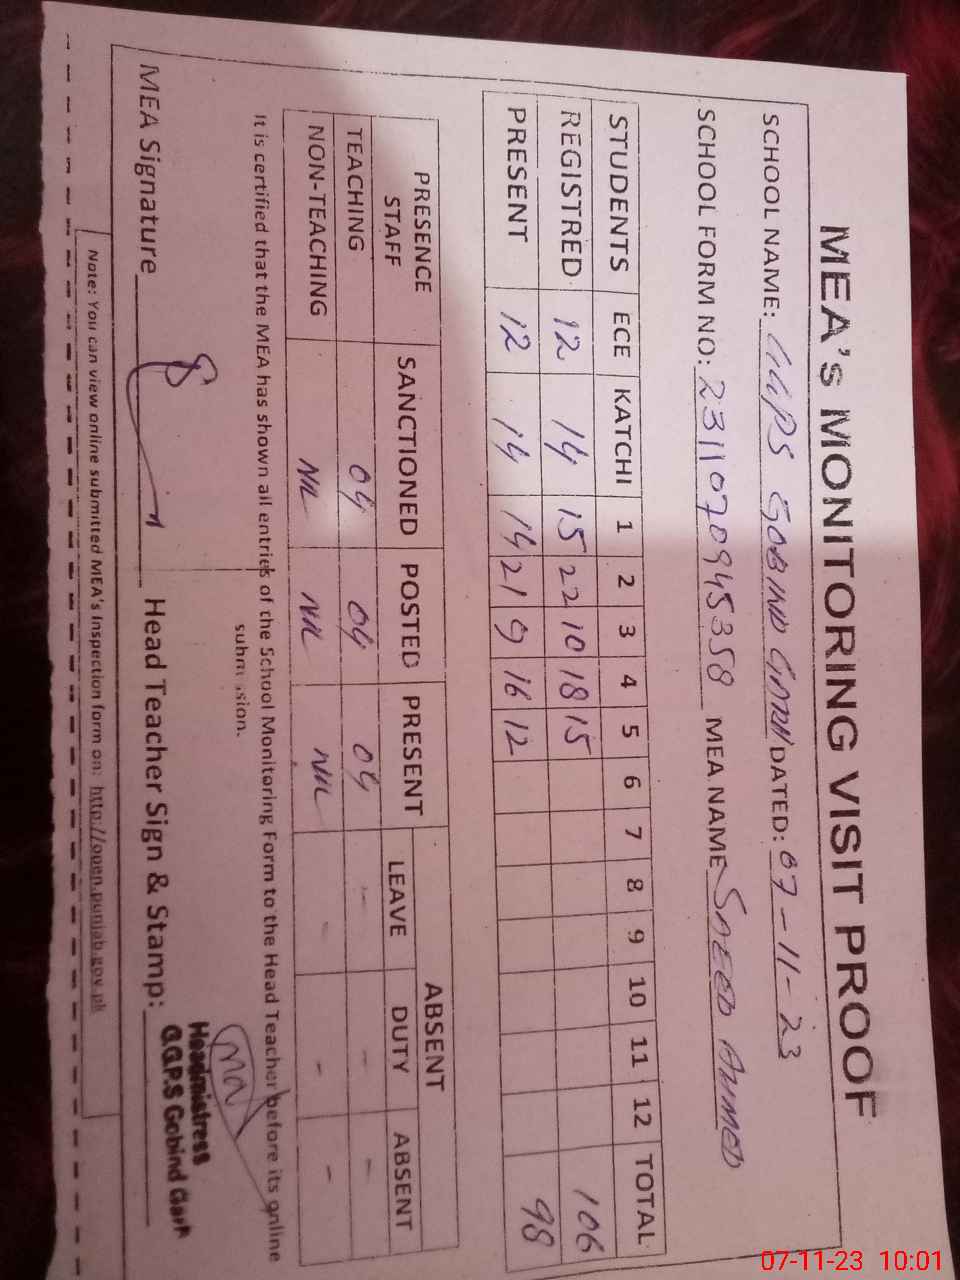 MEA's MONITORING VISIT PROOF
SCHOOL NAME: GGPS GOBIND GARH DATED: 07-11-23
SCHOOL FORM NO: 23110709945358 MEA NAME SAEED AHMED
STUDENTS ECE KATCHI 1 2 3 4 5 6 7 8 9 10 11 12 TOTAL
REGISTRED 12 14 15 22 10 18 15 106
PRESENT 12 14 14 21 9 16 12 98
PRESENCE STAFF SANCTIONED POSTED PRESENT ABSENT
LEAVE DUTY ABSENT
TEACHING 04 04 04 - - -
NON-TEACHING NIL NIL NIL - - -
It is certified that the MEA has shown all entries of the School Monitoring Form to the Head Teacher before its online
submission.
MEA Signature Head Teacher Sign & Stamp:
Headmistress
G.G.P.S Gobind Garh
Note: You can view online submitted MEA's Inspection form on: http://open.punjab.gov.pk
07-11-23 10:01